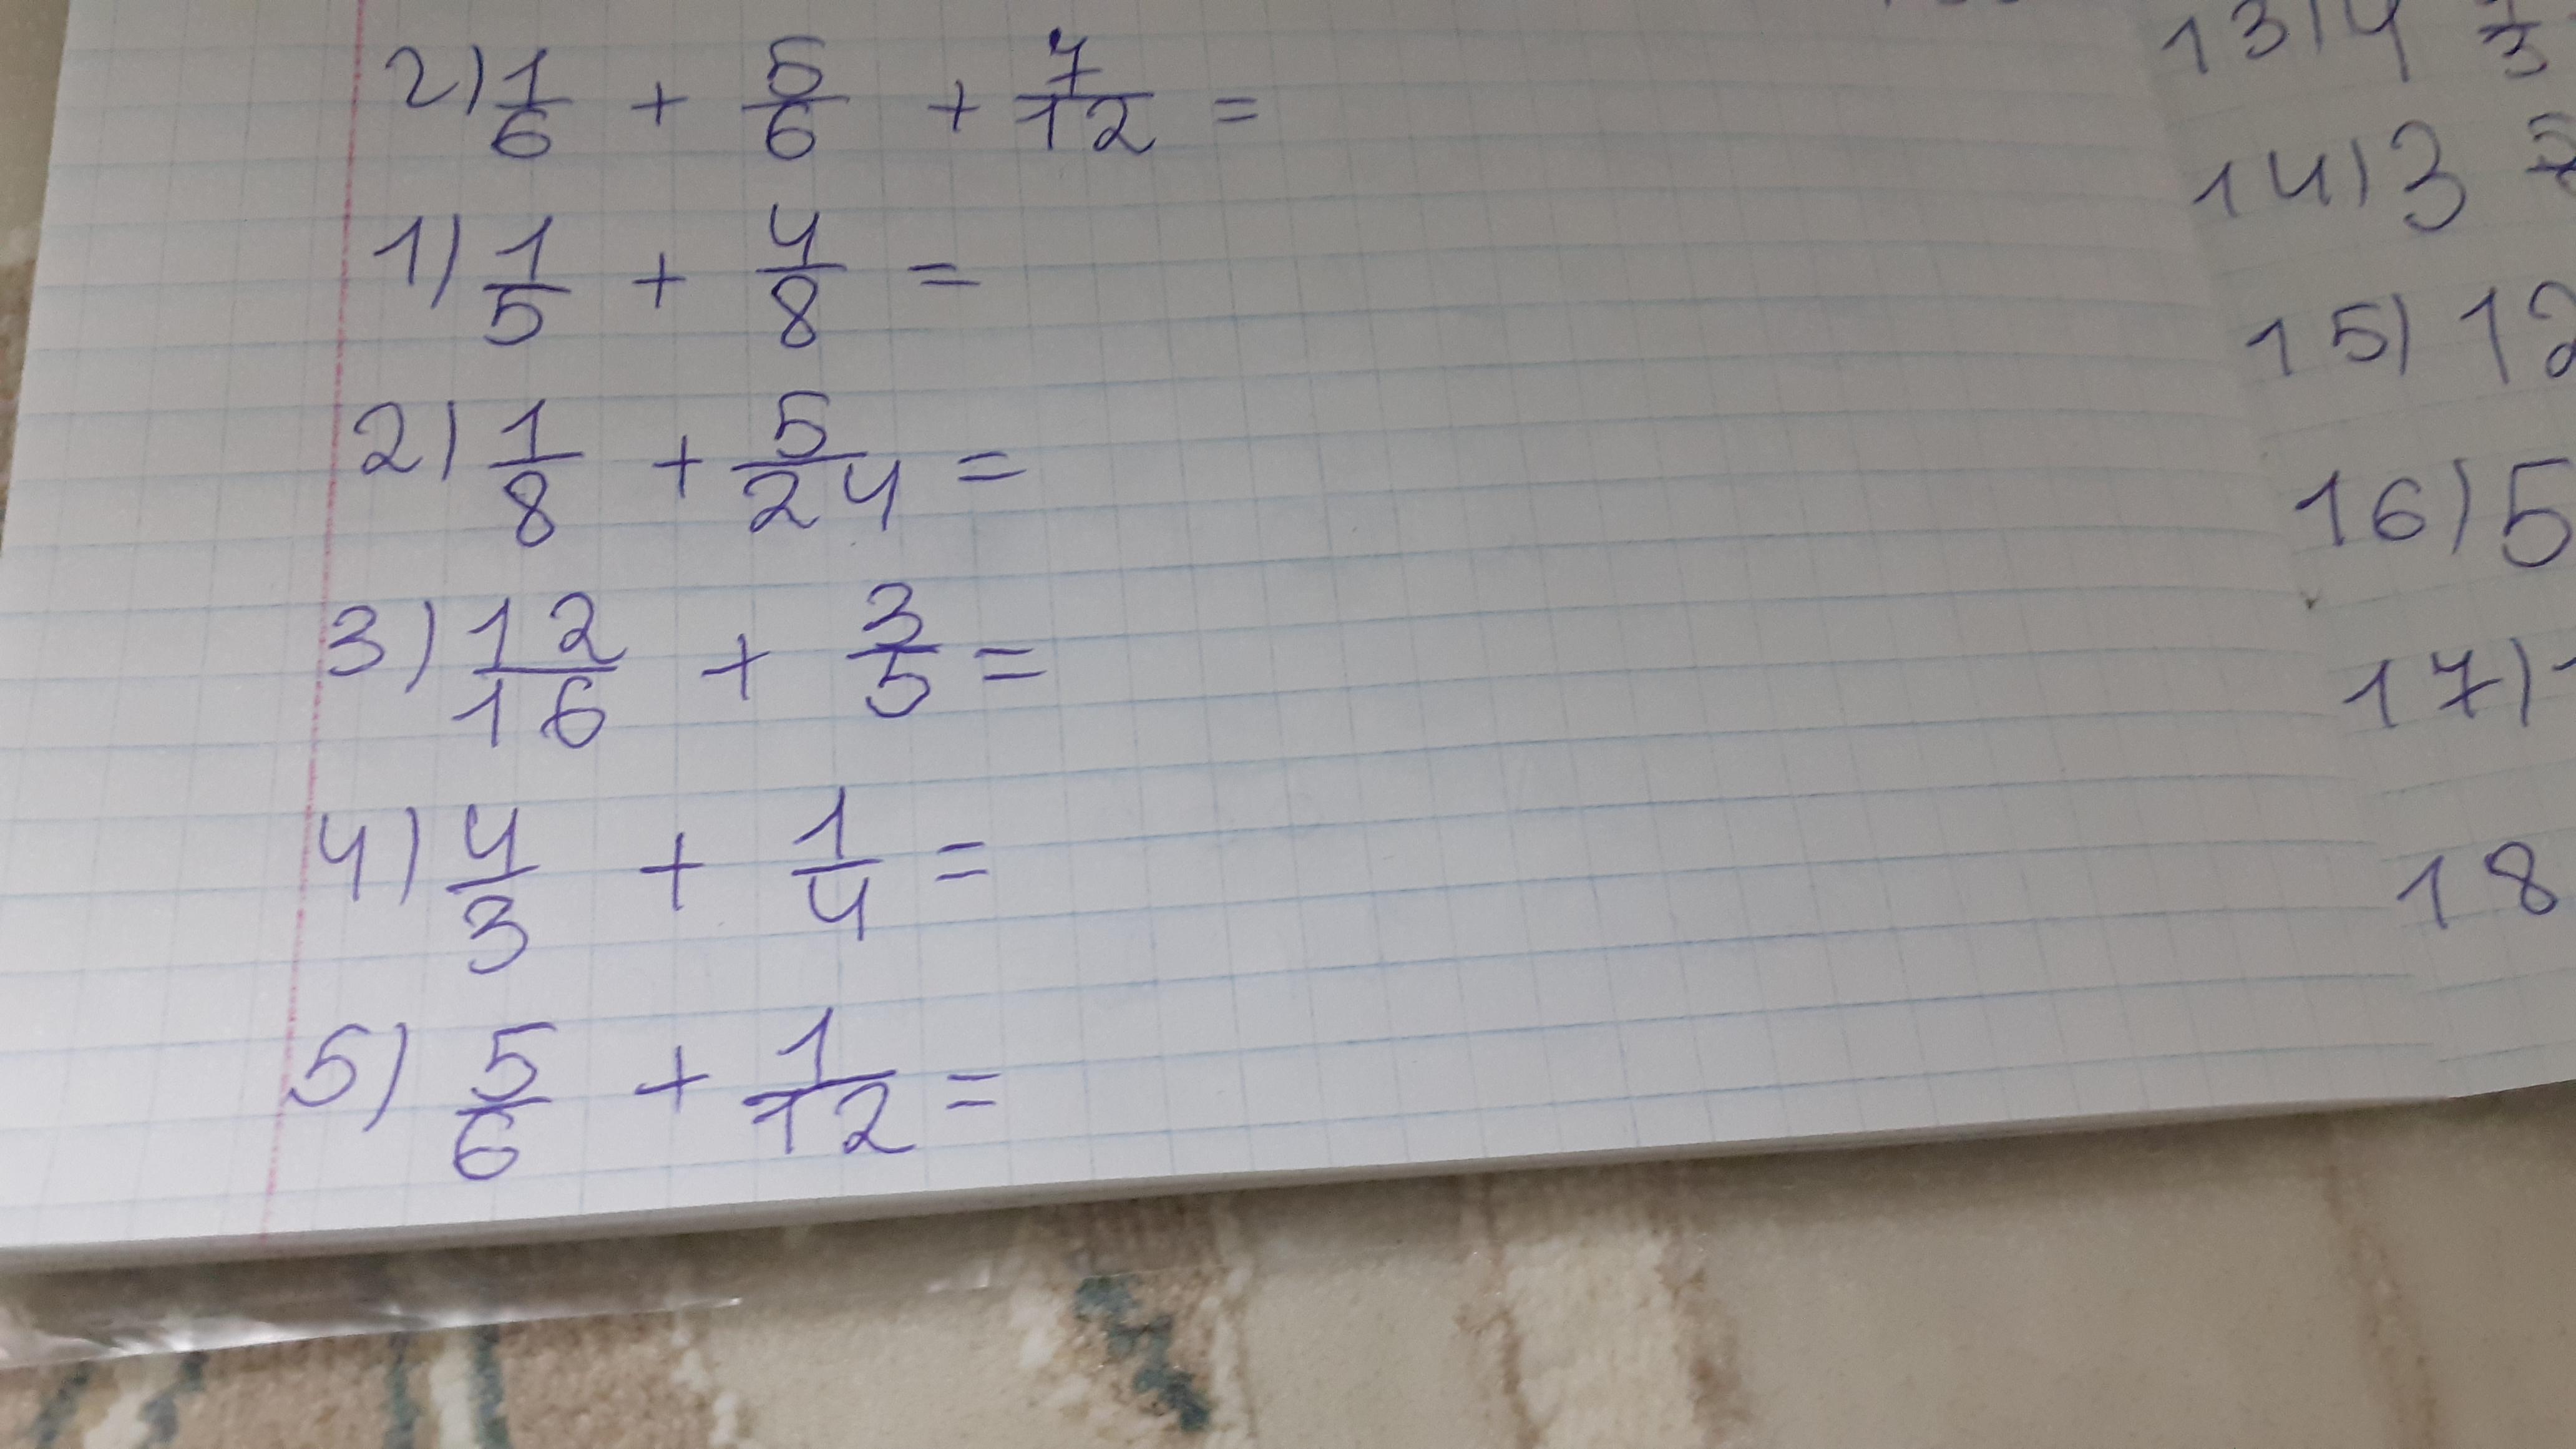 2) 1/6 + 5/6 + 7/12 =
1) 1/5 + 4/8 =
2) 1/8 + 5/24 =
3) 12/16 + 3/5 =
4) 4/3 + 1/4 =
5) 5/6 + 1/12 =
13) 4
14) 3
15) 12
16) 5
17)
18